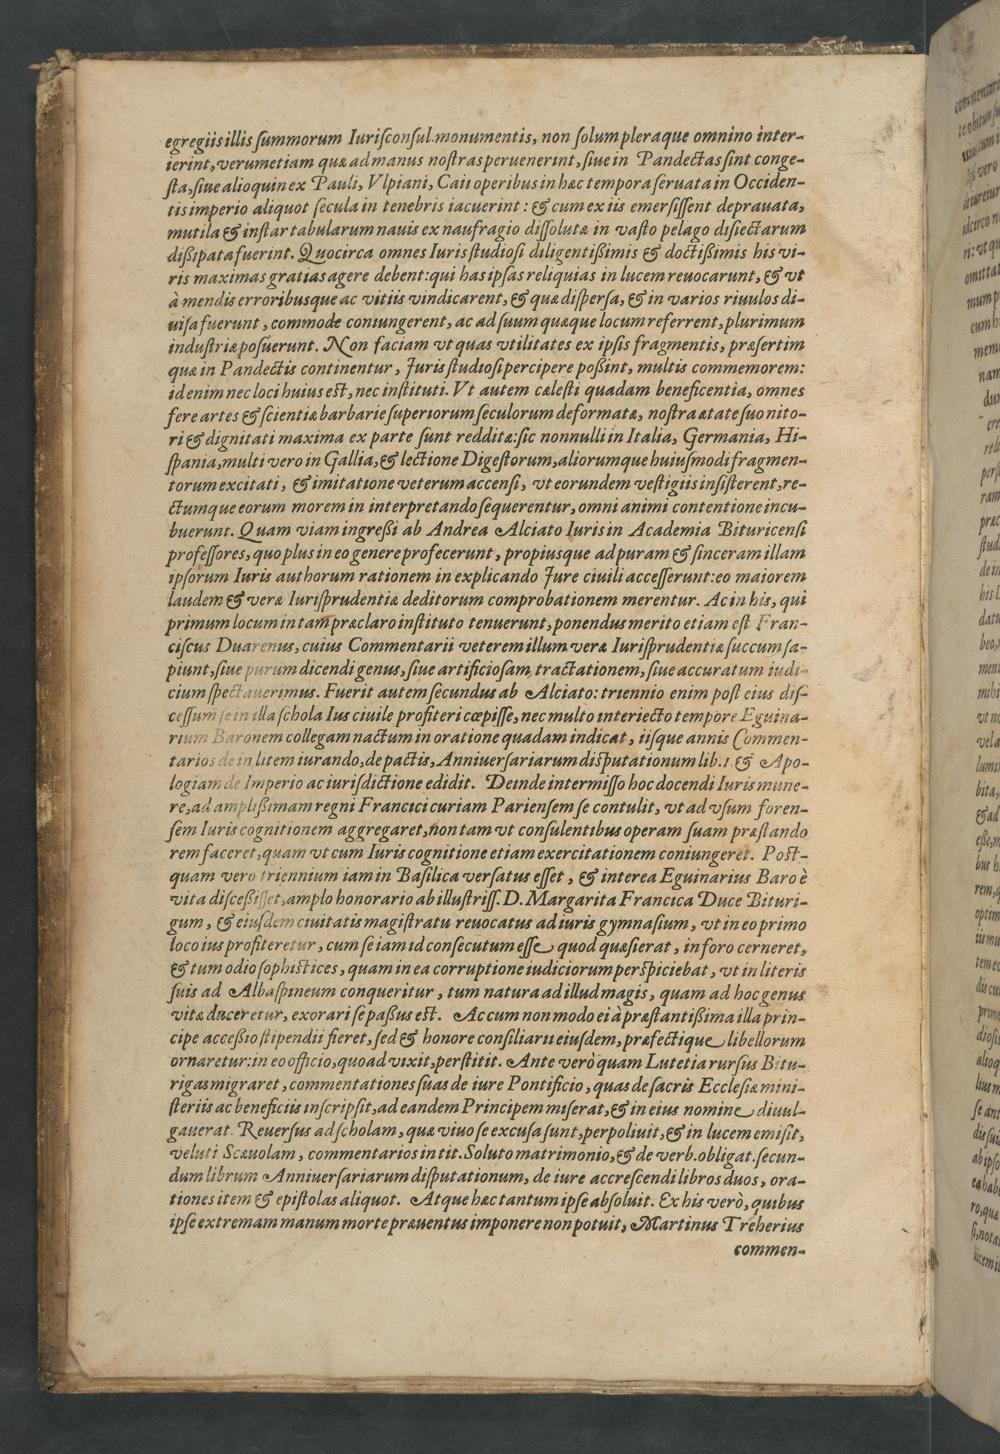 egregiis illis ſummorum Iuriſconſul.monumentis, non ſolum pleraque omnino inter-
ierint, verumetiam quæ ad manus noſtras peruenerint, ſiue in Pandectas ſint conge-
ſta, ſiue alioquin ex Pauli, Vlpiani, Caii operibus in hæc tempora ſeruata in Occiden-
tis imperio aliquot ſecula in tenebris iacuerint: & cum ex iis emerſiſſent deprauata,
mutila & inſtar tabularum nauis ex naufragio diſſolutæ in vaſto pelago diſiectarum
diſſipata fuerint. Quocirca omnes Iuris ſtudioſi diligentiſſimis & doctiſſimis his vi-
ris maximas gratias agere debent: qui has ipſas reliquias in lucem reuocarunt, & vt
à mendis erroribusque ac vitiis vindicarent, & quæ diſperſa, & in varios riuulos di-
uiſa fuerunt, commode coniungerent, ac ad ſuum quæque locum referrent, plurimum
induſtriæ poſuerunt. Non faciam vt quas vtilitates ex ipſis fragmentis, præſertim
quæ in Pandectis continentur, Iuris ſtudioſi percipere poßint, multis commemorem:
id enim nec loci huius eſt, nec inſtituti. Vt autem cæleſti quadam beneficentia, omnes
fere artes & ſcientiæ barbarie ſuperiorum ſeculorum deformatæ, noſtra ætate ſuo nito-
ri & dignitati maxima ex parte ſunt redditæ: ſic nonnulli in Italia, Germania, Hi-
ſpania, multi vero in Gallia, & lectione Digeſtorum, aliorumque huiuſmodi fragmen-
torum excitati, & imitatione veterum accenſi, vt eorundem veſtigiis inſiſterent, re-
ctumque eorum morem in interpretando ſequerentur, omni animi contentione incu-
buerunt. Quam viam ingreßi ab Andrea Alciato Iuris in Academia Bituricenſi
profeſſores, quo plus in eo genere profecerunt, propiusque ad puram & ſinceram illam
ipſorum Iuris authorum rationem in explicando Iure ciuili acceſſerunt: eo maiorem
laudem & veræ Iuriſprudentiæ deditorum comprobationem merentur. Ac in his, qui
primum locum in tam præclaro inſtituto tenuerunt, ponendus merito etiam eſt Fran-
ciſcus Duarenus, cuius Commentarii veterem illum veræ Iuriſprudentiæ ſuccum ſa-
piunt, ſiue purum dicendi genus, ſiue artificioſam tractationem, ſiue accuratum iudi-
cium ſpectauerimus. Fuerit autem ſecundus ab Alciato: triennio enim poſt eius diſ-
ceſſum ſe in illa ſchola Ius ciuile profiteri cœpiſſe, nec multo interiecto tempore Eguina-
rium Baronem collegam nactum in oratione quadam indicat, iiſque annis Commen-
tarios de in litem iurando, de pactis, Anniuerſariarum diſputationum lib.1. & Apo-
logiam de Imperio ac iuriſdictione edidit. Deinde intermiſſo hoc docendi Iuris mune-
re, ad ampliſſimam regni Francici curiam Parienſem ſe contulit, vt ad vſum foren-
ſem Iuris cognitionem aggregaret, non tam vt conſulentibus operam ſuam præſtando
rem faceret, quam vt cum Iuris cognitione etiam exercitationem coniungeret. Poſt-
quam vero triennium iam in Baſilica verſatus eſſet, & interea Eguinarius Baro è
vita diſceßiſſet, amplo honorario ab illuſtriſſ. D. Margarita Francica Duce Bituri-
gum, & eiuſdem ciuitatis magiſtratu reuocatus ad iuris gymnaſium, vt in eo primo
loco ius profiteretur, cum ſe iam id conſecutum eſſe quod quæſierat, in foro cerneret,
& tum odio ſophiſtices, quam in ea corruptione iudiciorum perſpiciebat, vt in literis
ſuis ad Albaſpineum conqueritur, tum natura ad illud magis, quam ad hoc genus
vitæ duceretur, exorari ſe paſſus eſt. Ac cum non modo ei à præſtantißima illa prin-
cipe acceßio ſtipendii fieret, ſed & honore conſiliarii eiuſdem, præfectique libellorum
ornaretur: in eo officio, quoad vixit, perſtitit. Ante verò quam Lutetia rurſus Bitu-
rigas migraret, commentationes ſuas de iure Pontificio, quas de ſacris Eccleſiæ mini-
ſteriis ac beneficiis inſcripſit, ad eandem Principem miſerat, & in eius nomine diuul-
gauerat. Reuerſus ad ſcholam, quæ viuo ſe excuſa ſunt, perpoliuit, & in lucem emiſit,
veluti Scæuolam, commentarios in tit. Soluto matrimonio, & de verb. obligat. ſecun-
dum librum Anniuerſariarum diſputationum, de iure accreſcendi libros duos, ora-
tiones item & epiſtolas aliquot. Atque hæc tantum ipſe abſoluit. Ex his verò, quibus
ipſe extremam manum morte præuentus imponere non potuit, Martinus Treherius
commen-